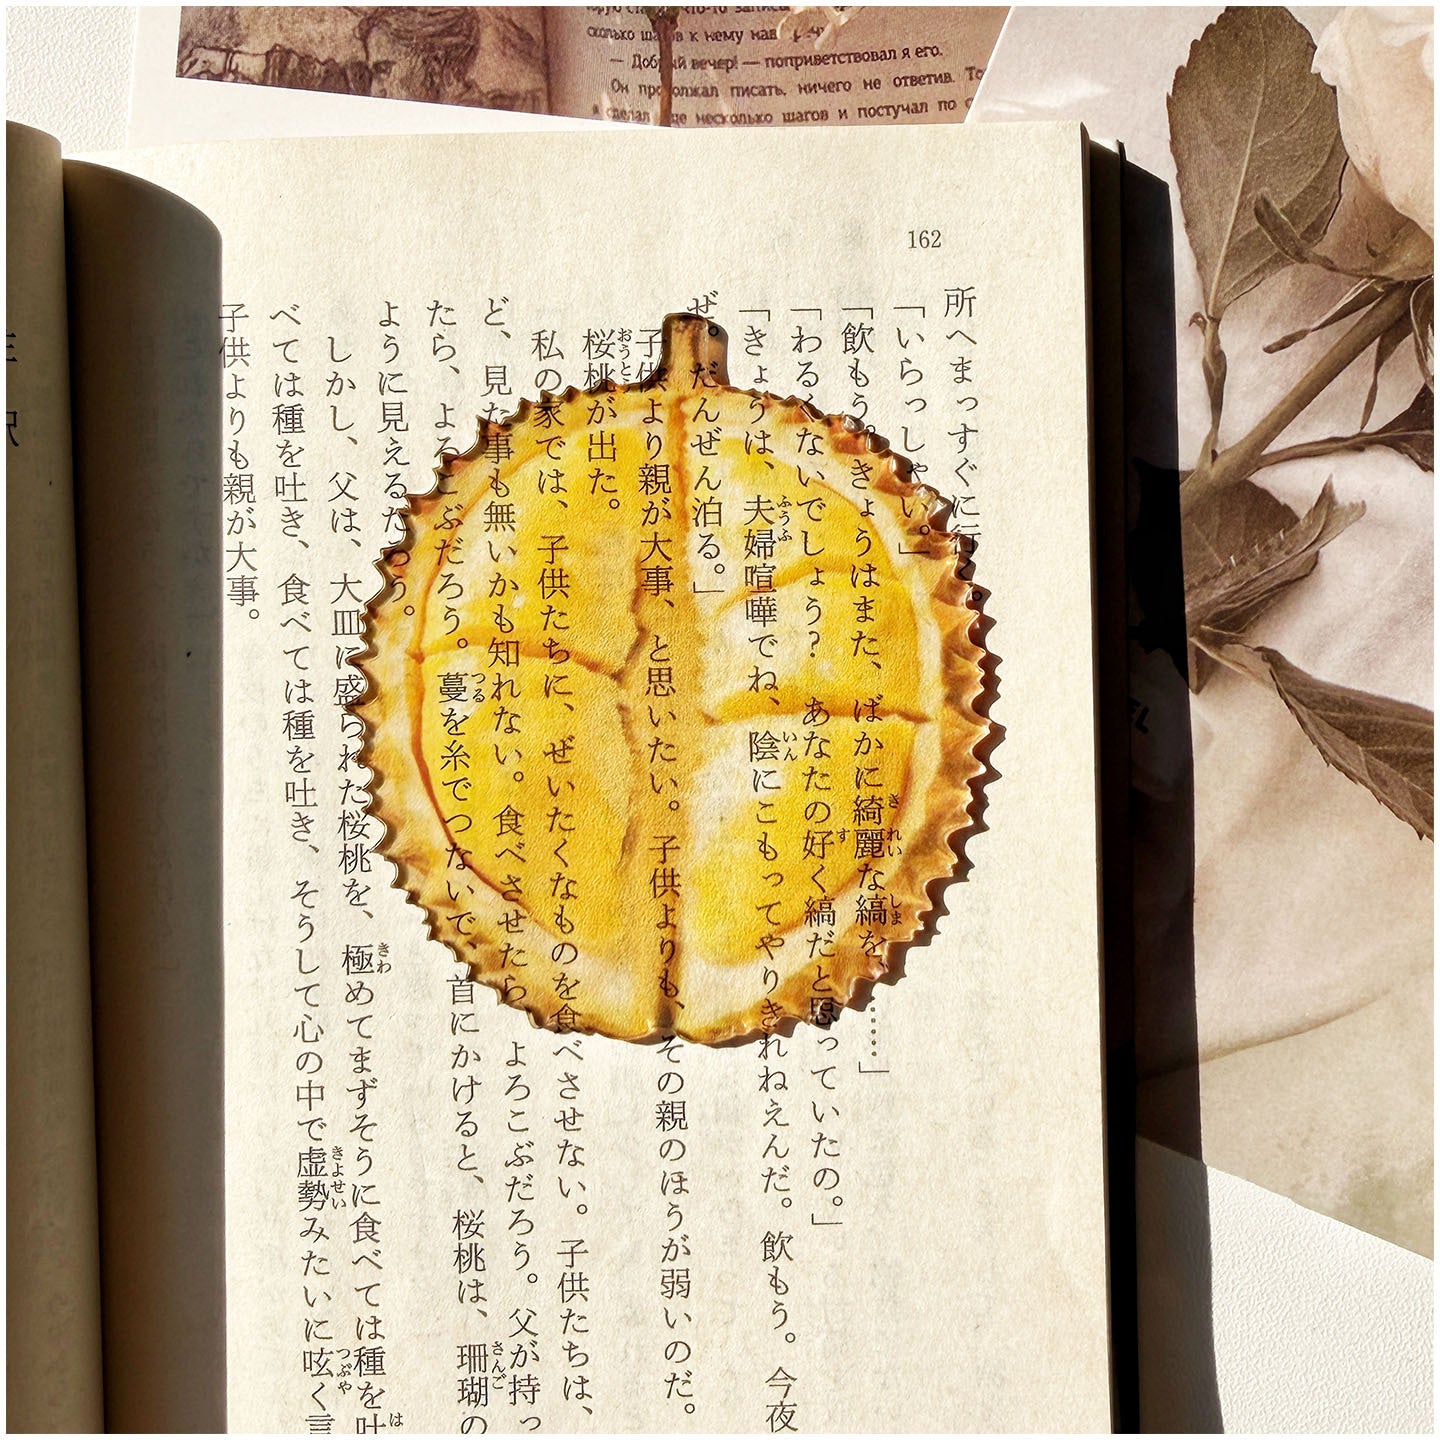 что-то
шагов к нему
— Добрый вечер! — поприветствовал я его.
Он продолжал писать, ничего не ответив. То
я сделал еще несколько шагов и постучал по
162
所へまっすぐに行く。
「いらっしゃい。」
「飲もう。きょうはまた、ばかに綺麗な縞を、……」
「わるくないでしょう? あなたの好く縞だと思っていたの。」
「きょうは、夫婦喧嘩でね、陰にこもってやりきれねえんだ。飲もう。今夜
ぜ。だんぜん泊る。」
子供より親が大事、と思いたい。子供よりも、その親のほうが弱いのだ。
桜桃が出た。
私の家では、子供たちに、ぜいたくなものを食べさせない。子供たちは、
ど、見た事も無いかも知れない。食べさせたら、よろこぶだろう。父が持っ
たら、よろこぶだろう。蔓を糸でつないで、首にかけると、桜桃は、珊瑚の
ように見えるだろう。
しかし、父は、大皿に盛られた桜桃を、極めてまずそうに食べては種を吐
べては種を吐き、食べては種を吐き、そうして心の中で虚勢みたいに呟く言
子供よりも親が大事。